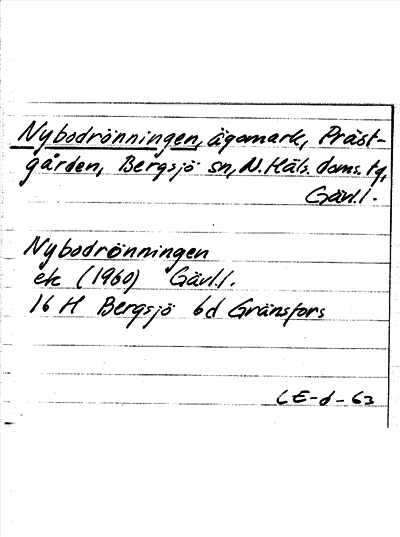 Nybodrönningen, ägomark, Präst-
gården, Bergsjö sn, N. Häls. doms. tg,
Gävl.l.
Nybodrönningen
ek (1960) Gävl.l.
16 H Bergsjö 6d Gränsfors
CE-d-63